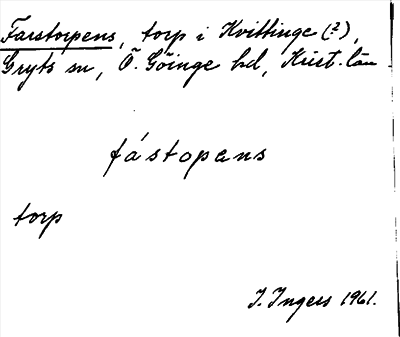 Farstorpens, torp i Hvittinge (?),
Gryts sn, Ö. Göinge hd, Krist. län
fástopens
torp
I. Ingers 1961.